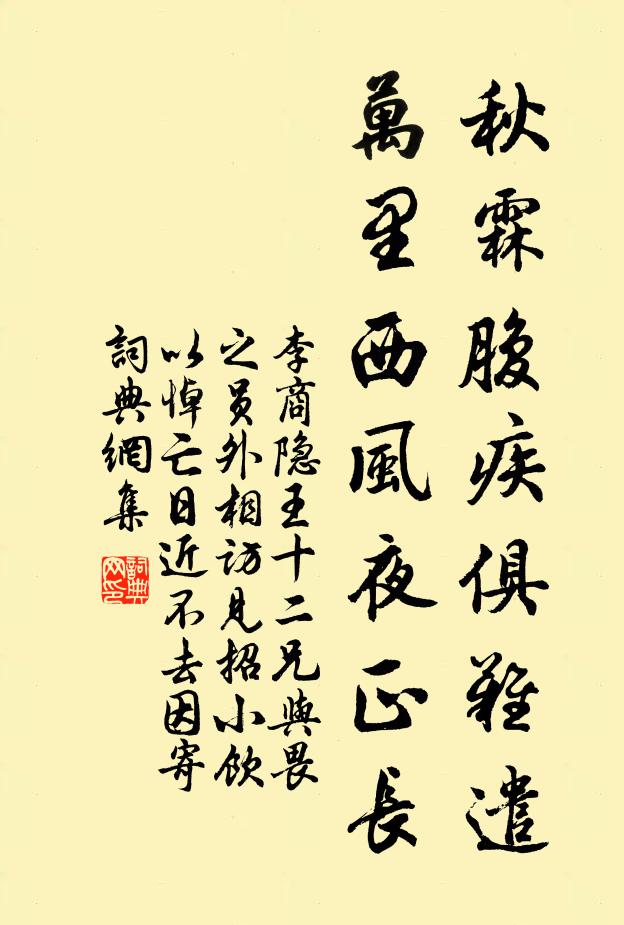 秋霖腹疾俱難遣
萬里西風夜正長
李商隐王十二兄與畏
之員外相訪見招小飲
以悼亡日近不去因寄
詞典網集
詞典网印